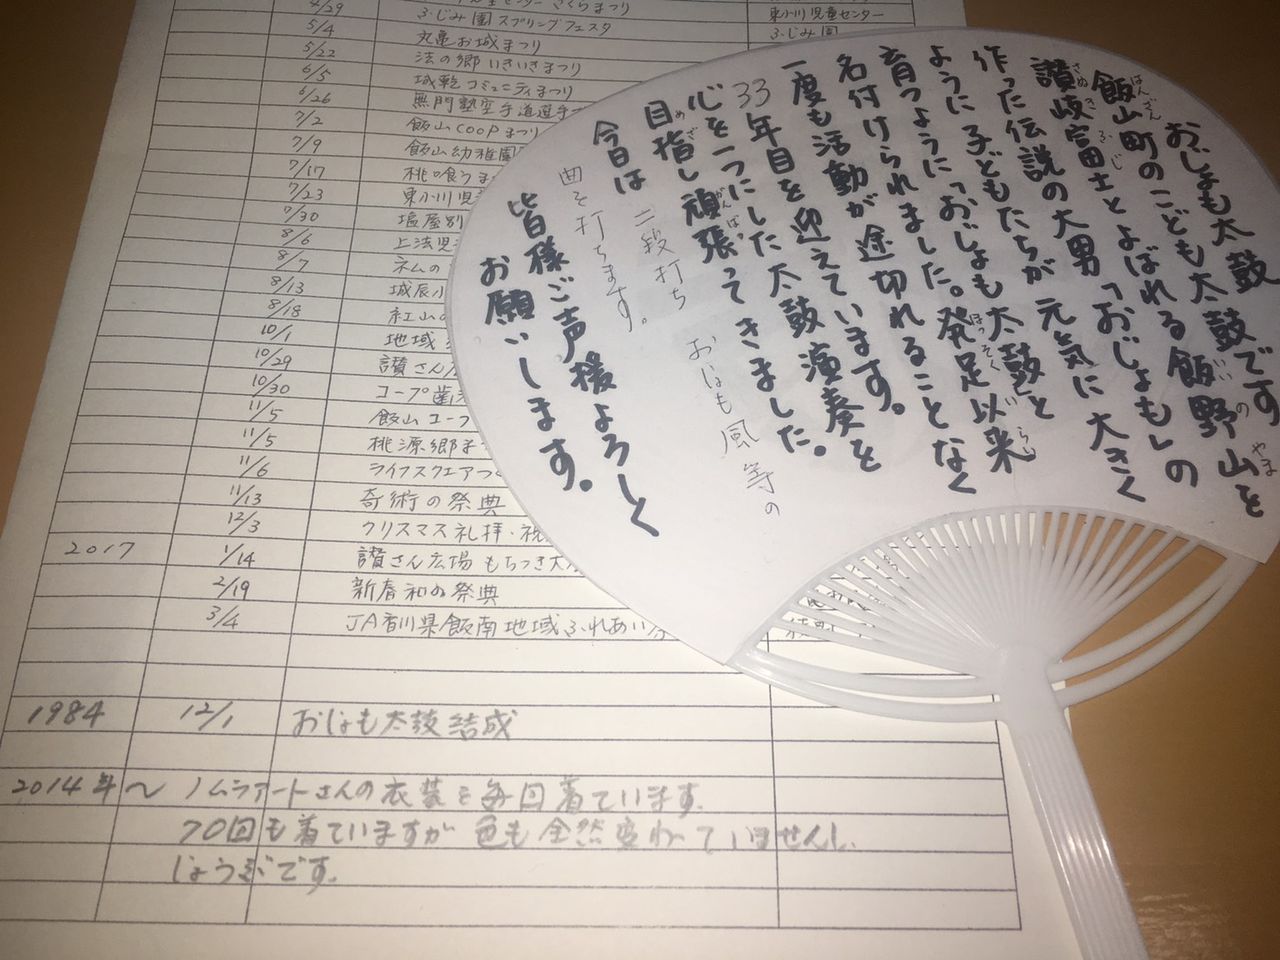 4/29 さくらまつり 東小川児童センター
5/4 ふじみ園スプリングフェスタ ふじみ園
5/22 丸亀お城まつり
6/5 法の郷いきいきまつり
6/26 城乾コミュニティまつり
7/2 無門塾空手道選手
7/9 飯山COOPまつり
7/17 飯山幼稚園
7/23 桃喰うまつ
7/30 東小川児
8/6 塩屋別
8/7 上法児
8/13 ネムの
8/18 城辰小
10/1 紅山の
10/29 地域
10/30 讃さん広
11/5 コープ歯
11/5 飯山コープ
11/6 桃源郷ま
11/13 ライフスクエアつ
12/3 奇術の祭典
クリスマス礼拝・祝
2017 1/14 讃さん広場もちつき大
2/19 新春和の祭典
3/4 JA香川県飯南地域ふれあい
1984 12/1 おじょも太鼓結成
2014年〜ノムラアートさんの衣装を毎回着ています。
70回も着ていますが色も全然変わっていませんし、
じょうぶです。
おじょも太鼓
飯山町のこども太鼓です。
讃岐富士とよばれる飯野山を
作った伝説の大男「おじょも」の
ように子どもたちが元気に大きく
育つように「おじょも太鼓」と
名付けられました。発足以来
一度も活動が途切れることなく
33年目を迎えています。
心を一つにした太鼓演奏を
目指し頑張ってきました。
今日は 二段打ち おじょも風等の
曲を打ちます。
皆様ご声援よろしく
お願いします。